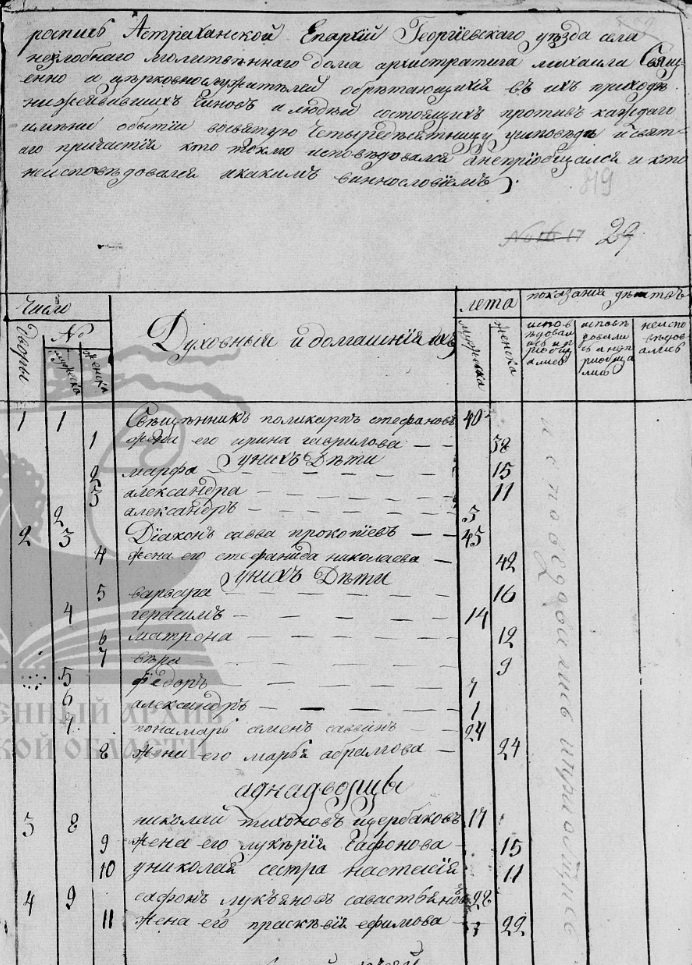 роспись Астраханской Епархїи Георгїевскаго уѣзда села
незлобнаго молитвеннаго дома архистратига михаила Свящ
енно и церковнослужителей обрѣтающихся въ ихъ приходѣ
нижеявившихъ чиновъ и людей состоящихъ противъ каждаго
имени о бытїи восвятую четыредесятницу уисповѣди исвят
аго причастїя кто токмо исповѣдовался анепрїобщался и кто
неисповѣдовался икакимъ виннословїемъ
819
29
Число
лета
показанїя
дворы
№
Духовныи и домашнїя ихъ
мужеска
женска
мужеска
женска
испов
ѣдовал
исповѣ
довали
неиспо
вѣдов
ались
1 1 Священникъ поликарпъ стефановъ 40
1 жена его ирина гаврилова 38
Униxъ Дѣти
2 марфа 15
3 александра 11
2 александръ 5
2 3 Дїаконъ савва прокопїевъ 45
4 жена его стефанида николаева 42
Унихъ Дѣти
5 варвара 16
4 герасимъ 14
6 матрона 12
7 вѣра 9
5 федоръ 7
6 александръ 1
7 понамарь семенъ саввинъ 24
8 жена его марья абрамова 24
аднадворцы
3 8 николай тихоновъ щербаковъ 17
9 жена его лукѣрїя сафонова 15
10 униколая сестра настасїя 11
4 9 сафонъ лукьяновъ 28
11 жена его прасковїя ефимова 22
исповедоались
ЕННЫЙ АРХИВ
КОЙ ОБЛАСТИ